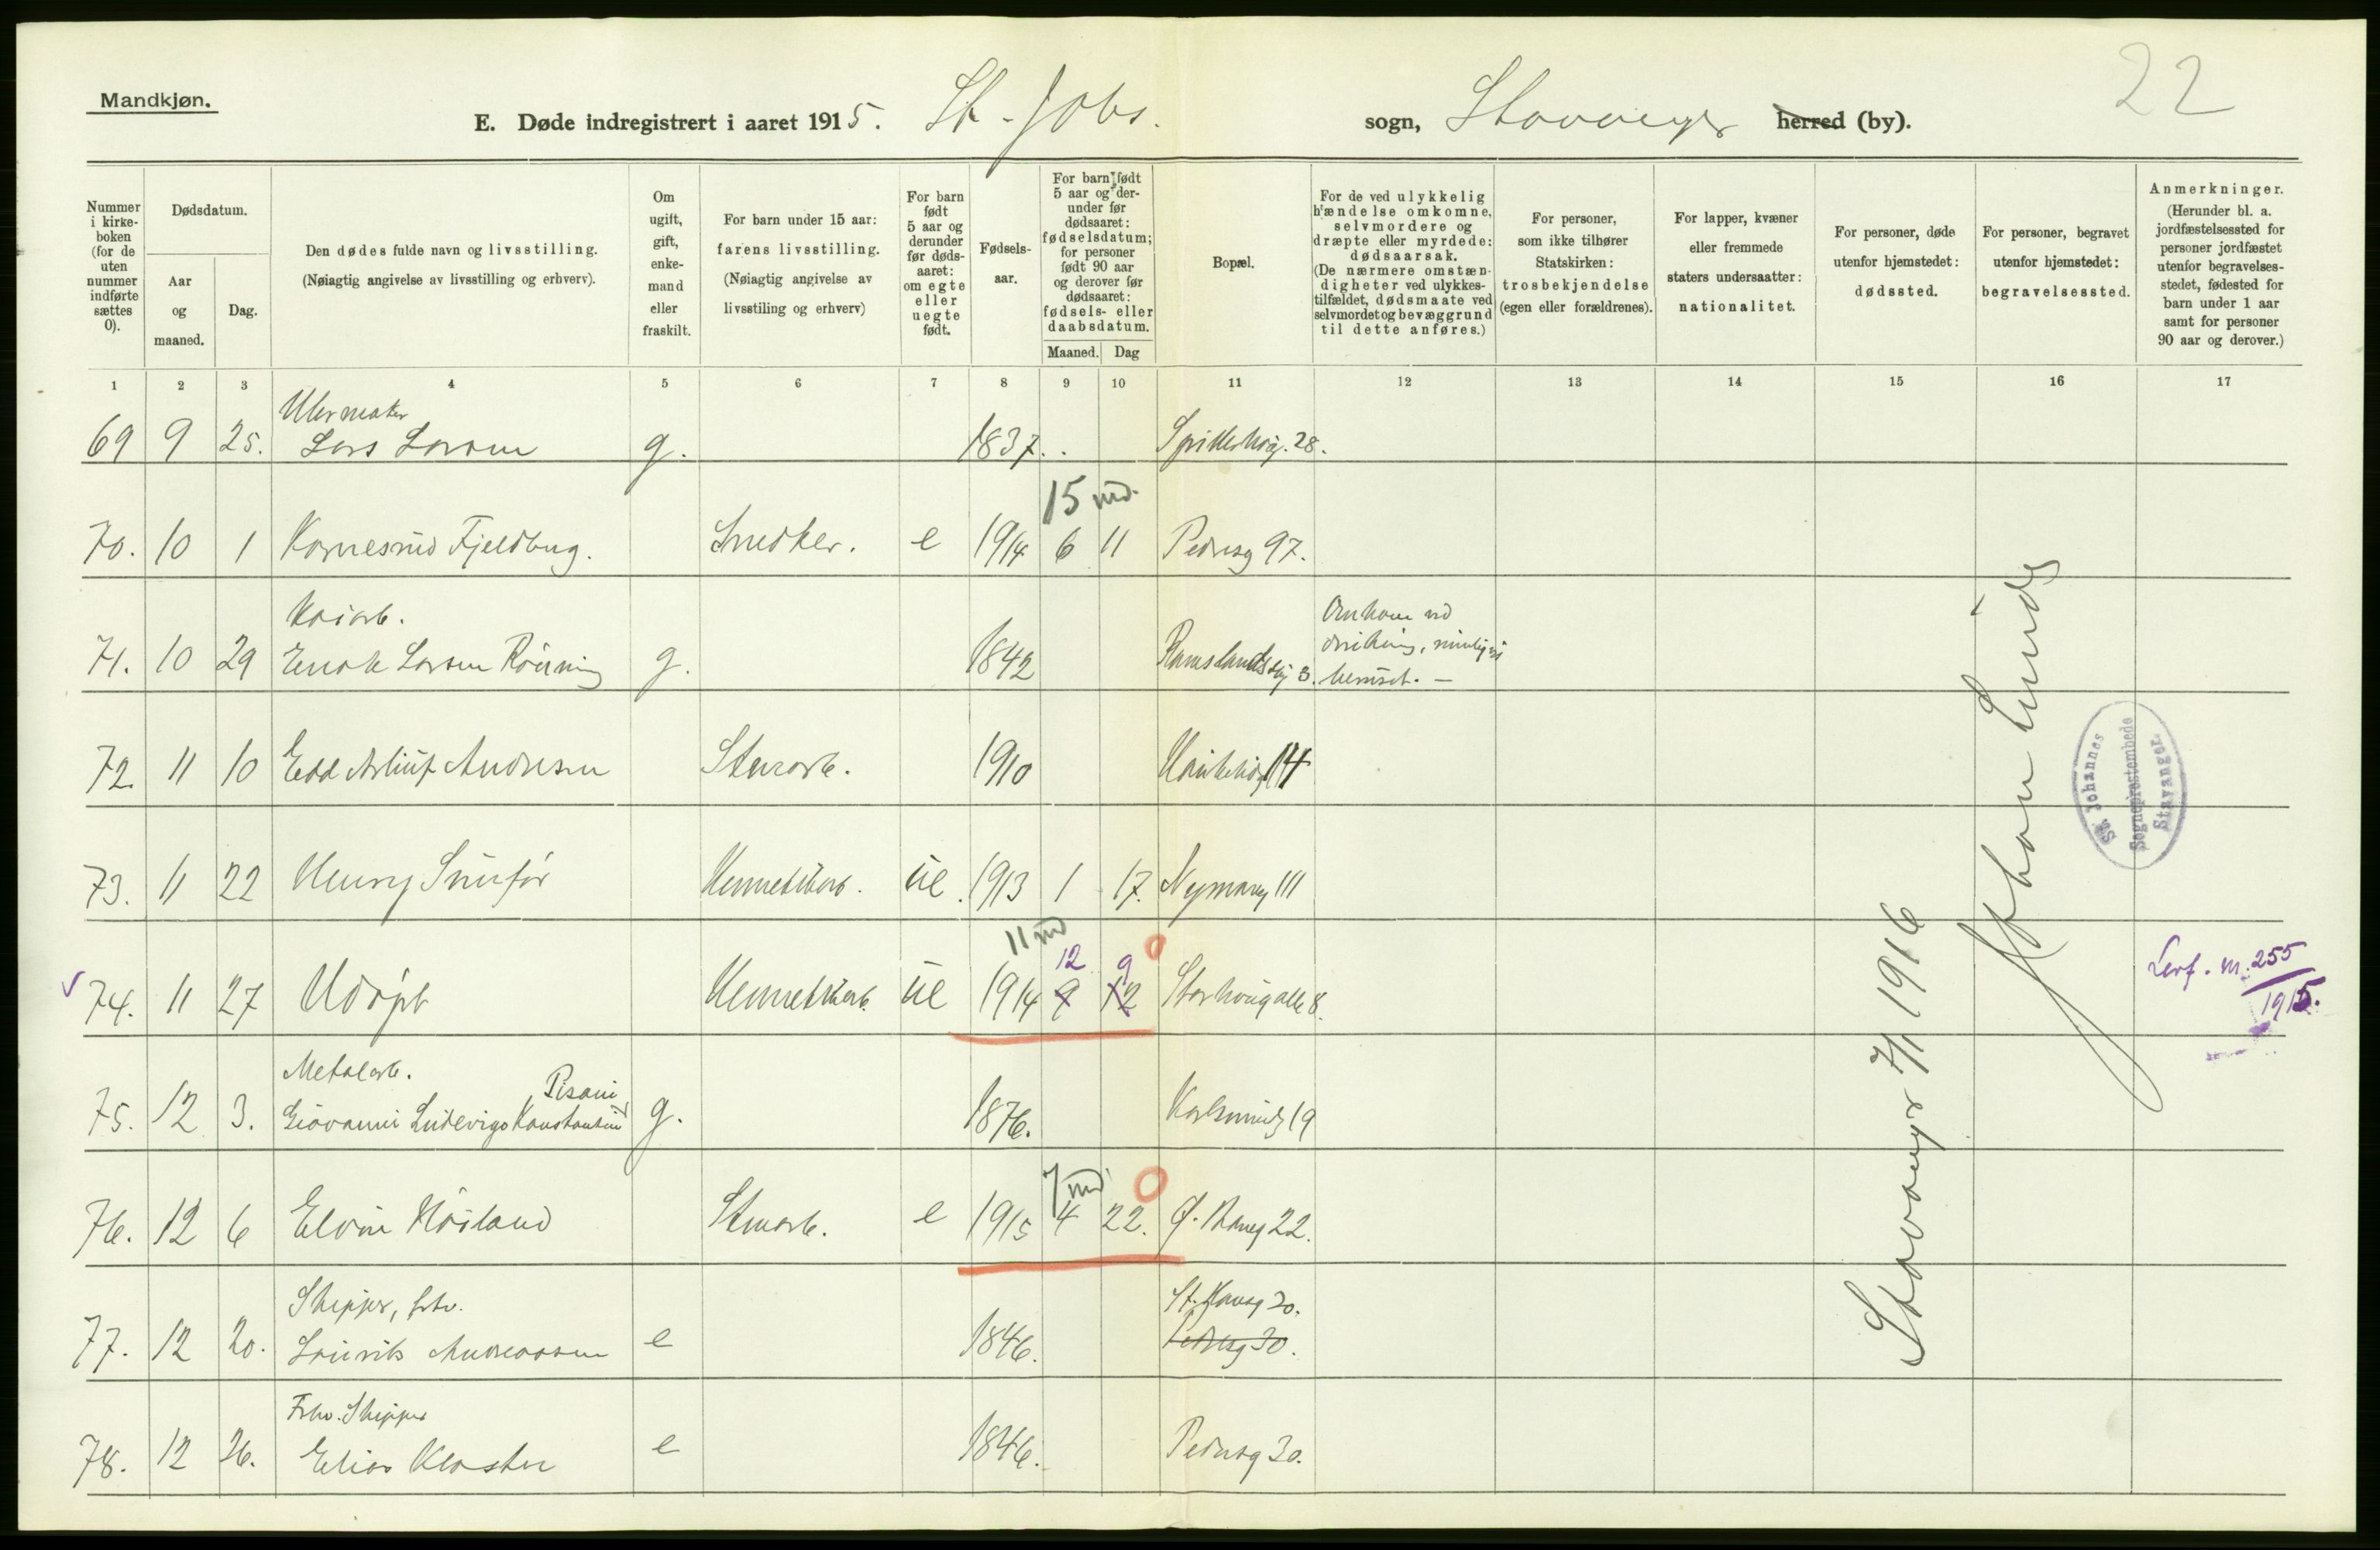 22
Mandkjøn.
E. Døde indregistrert i aaret 1915. St. Johs. sogn, Stavanger herred (by).
Nummer i kirkeboken (for de uten nummer indførte sættes 0).
Dødsdatum.
Aar og maaned.
Dag.
Den dødes fulde navn og livsstilling. (Nøiagtig angivelse av livsstilling og erhverv).
Om ugift, gift, enkemand eller fraskilt.
For barn under 15 aar: farens livsstilling. (Nøiagtig angivelse av livsstiling og erhverv)
For barn født 5 aar og derunder før dødsaaret: om egte eller uegte født.
Fødselsaar.
For barn født 5 aar og derunder før dødsaaret: fødselsdatum; for personer født 90 aar og derover før dødsaaret: fødsels- eller daabsdatum.
Maaned. Dag
Bopæl.
For de ved ulykkelig hændelse omkomne, selvmordere og dræpte eller myrdede: dødsaarsak. (De nærmere omstændigheter ved ulykkestilfældet, dødsmaate ved selvmordet og bevæggrund til dette anføres.)
For personer, som ikke tilhører Statskirken: trosbekjendelse (egen eller forældrenes).
For lapper, kvæner eller fremmede staters undersaatter: nationalitet.
For personer, døde utenfor hjemstedet: dødssted.
For personer, begravet utenfor hjemstedet: begravelsessted.
Anmerkninger. (Herunder bl. a. jordfæstelsessted for personer jordfæstet utenfor begravelsesstedet, fødested for barn under 1 aar samt for personer 90 aar og derover.)
1 2 3 4 5 6 7 8 9 10 11 12 13 14 15 16 17
Uhrmaker
69 9 25. Lars Larsen g. 1837. 28.
15 md.
70. 10 1 Fjeldberg. Snedker. e 1914 6 11 Pedersg 97.
Kaiarb.
71. 10 29 Enok Larsen Rönning g. 1842 Ramslandsvg 3. Omkom ved drukning, beruset. -
72. 11 10 Andresen Stenarb. 1910 114
73. 11 22 Henry Hermetikarb. ue. 1913 1 17. Nymansv 111
11 md 12 9 0
74. 11 27 Udøpt Hermetikarb. ue 1914 9 12 Storhougalle 8. Levf. nr. 255
1915.
Metalarb. Pisani
75. 12 3. Giovanni Ludevigo Konstantin g. 1876. Karlsmindeg 19
7 md 0
76. 12 6 Elvin Höiland Stenarb. e 1915 4 22. 22.
Skipper, fhv. St. Hansg 20.
77. 12 20. Laurits Andreassen e 1846. Pedersg 30.
Fhv. Skipper
78. 12 26. Elias Kloster e 1846. Pedersg 30.
Stavanger 7/1 1916
Johan Lunde
St. Johannes
Sogneprestembede
Stavanger.